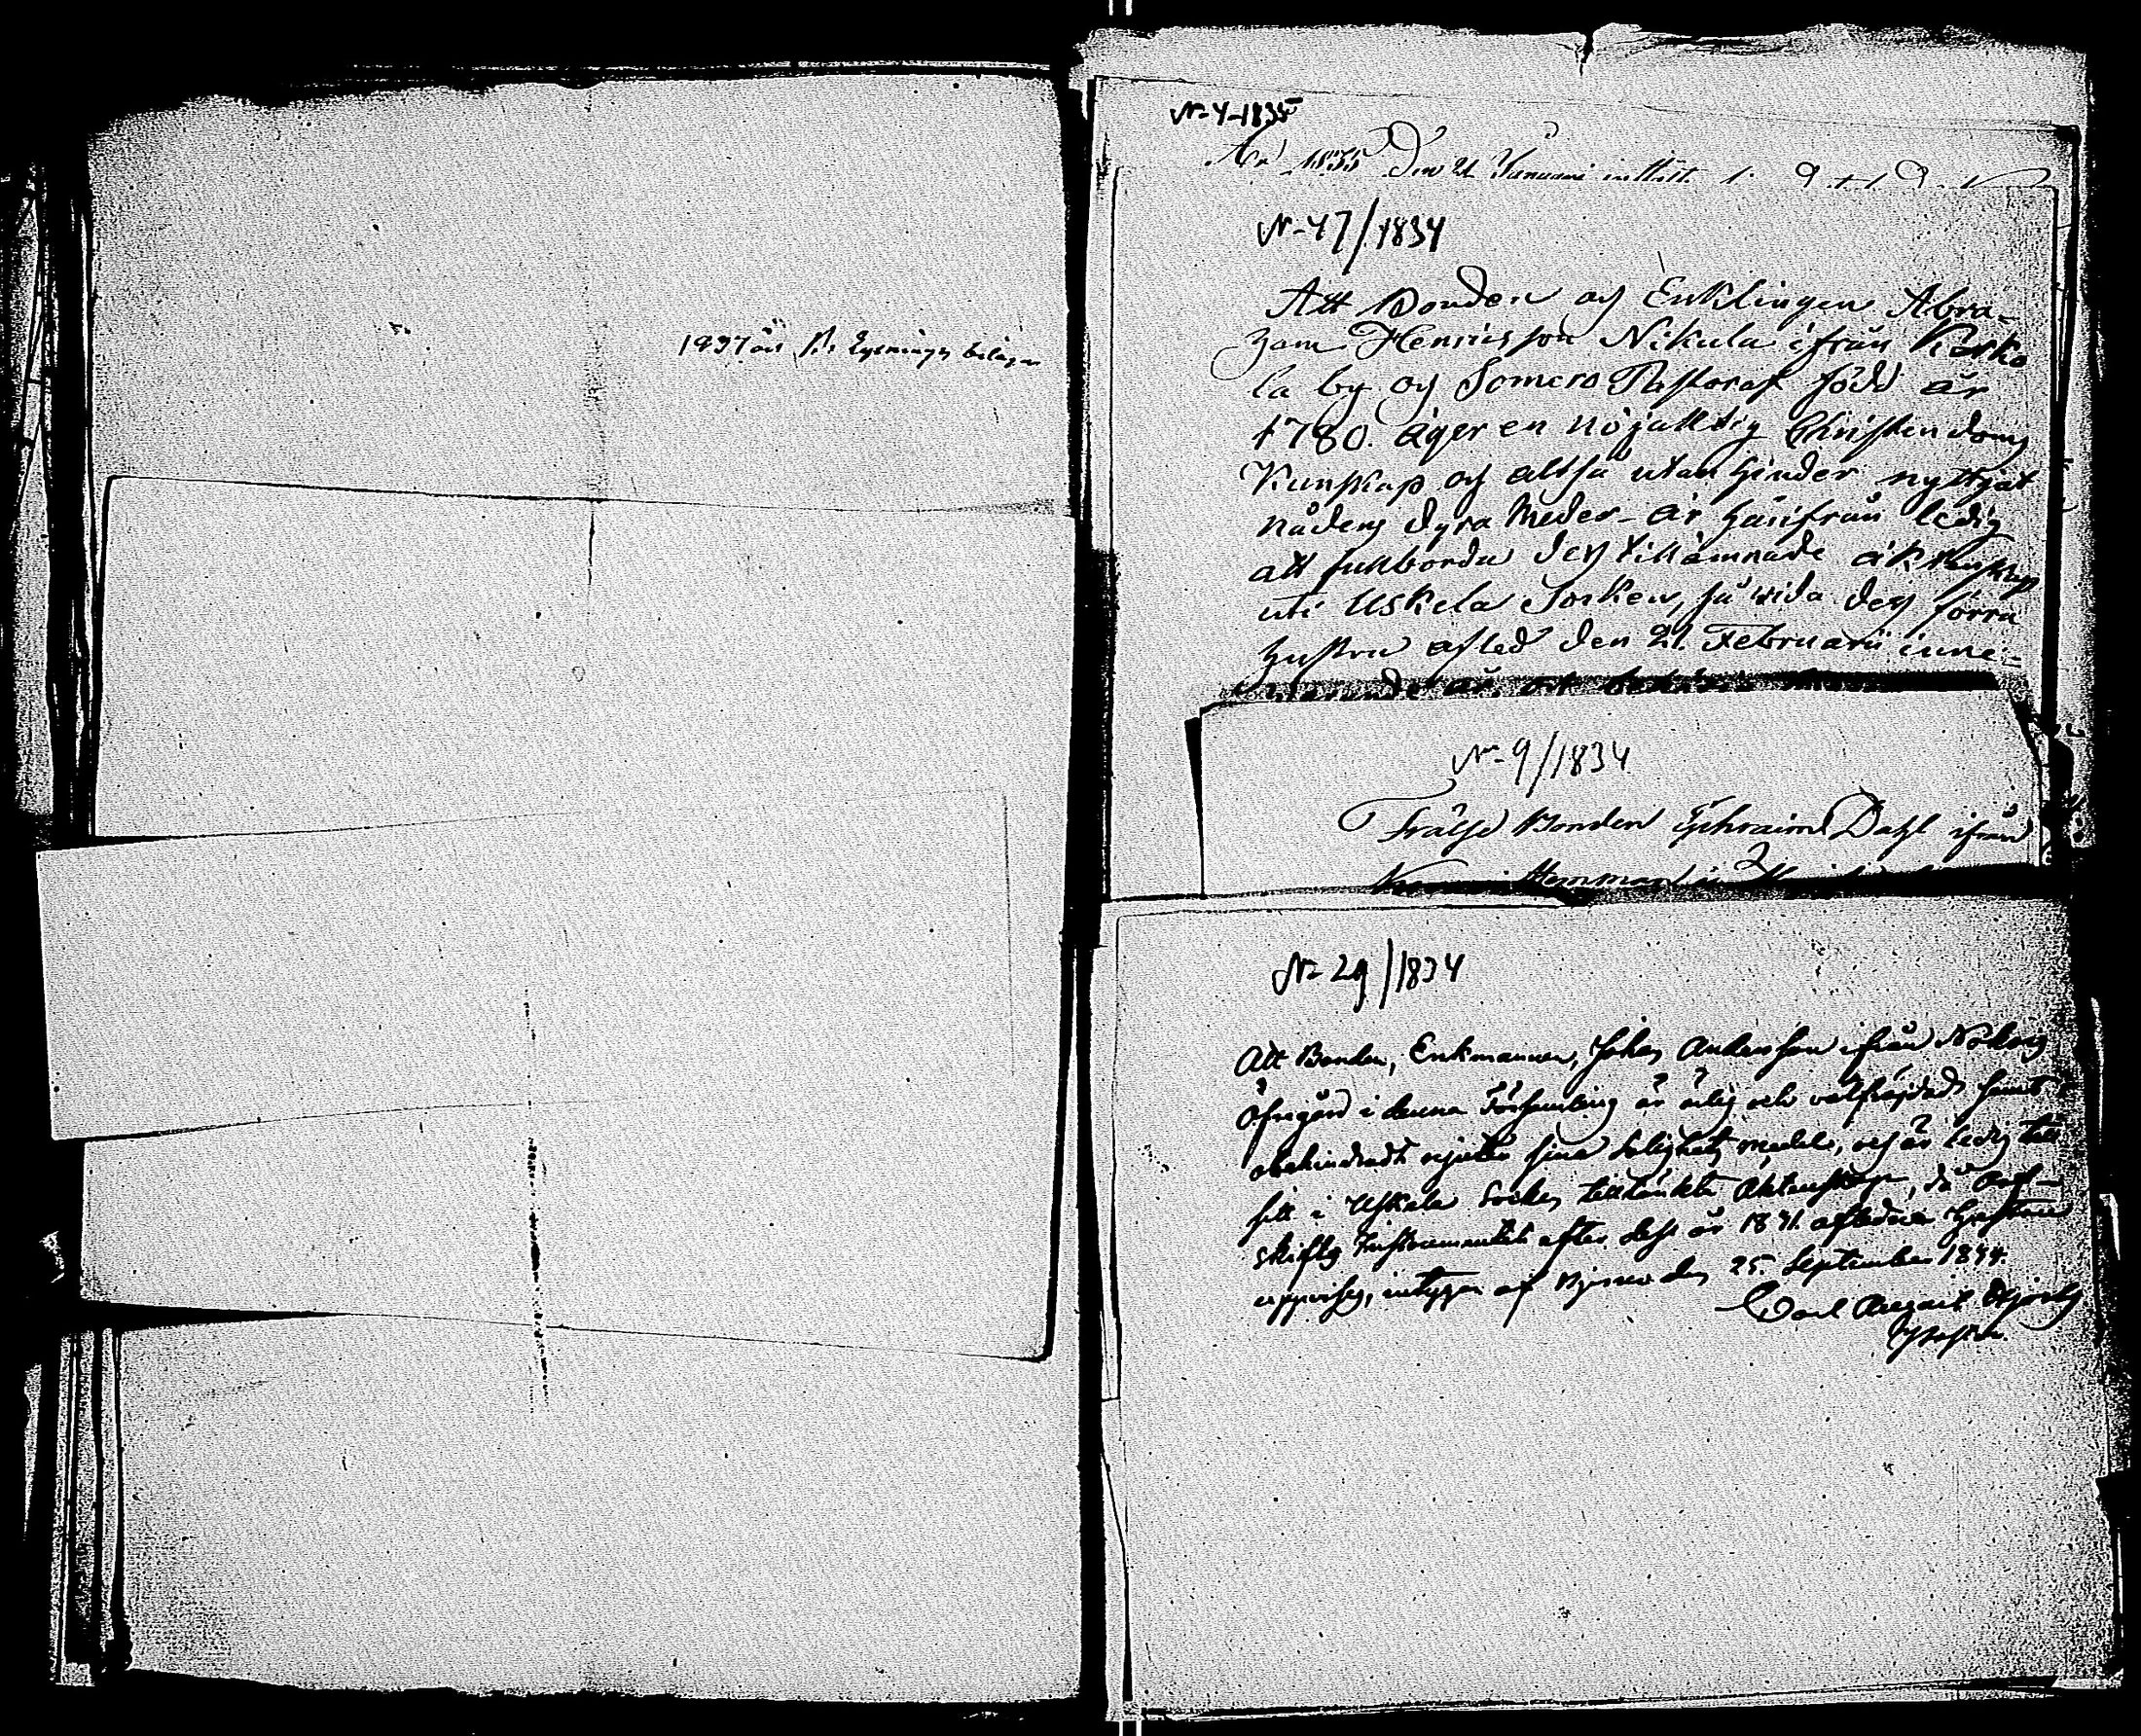 1837 års Lysnings bilagor
N-4-1835
År 1835 Den 21 Januarii
N-47/1834
Att Bonden och Enklingen Abra-
ham Henriksson Nikula ifrån Kosko
la by och Somero Pastorat född år
1780. äger en nöjaktig Christendoms
Kunskap och altså utan hinder nyttjat
nådens dyra Medel – är härifrån ledig
att fullborda dess tillämnade äktenskap
uti Uskela Socken, så vida dess förra
hustru afled den 21. Februarii inne-
varande år, och
N-9/1834
Frälse Bonden Ephraim Dahl ifrån
Hemman
N-29/1834
Att Bonden, Enkmannen, Johan Andersson ifrån
Öfregård i denna Församling är ärlig och välfräjdad samt
obehindradt njuter sina Salighets medel, och är ledig till
sitt i Uskela Socken tilltänkta Äktenskap, då Arf-
skiftes Instrumentet efter dess år 1831. aflidna Hustru
uppvises, intygar af Bjerno den 25. September 1834.
Carl